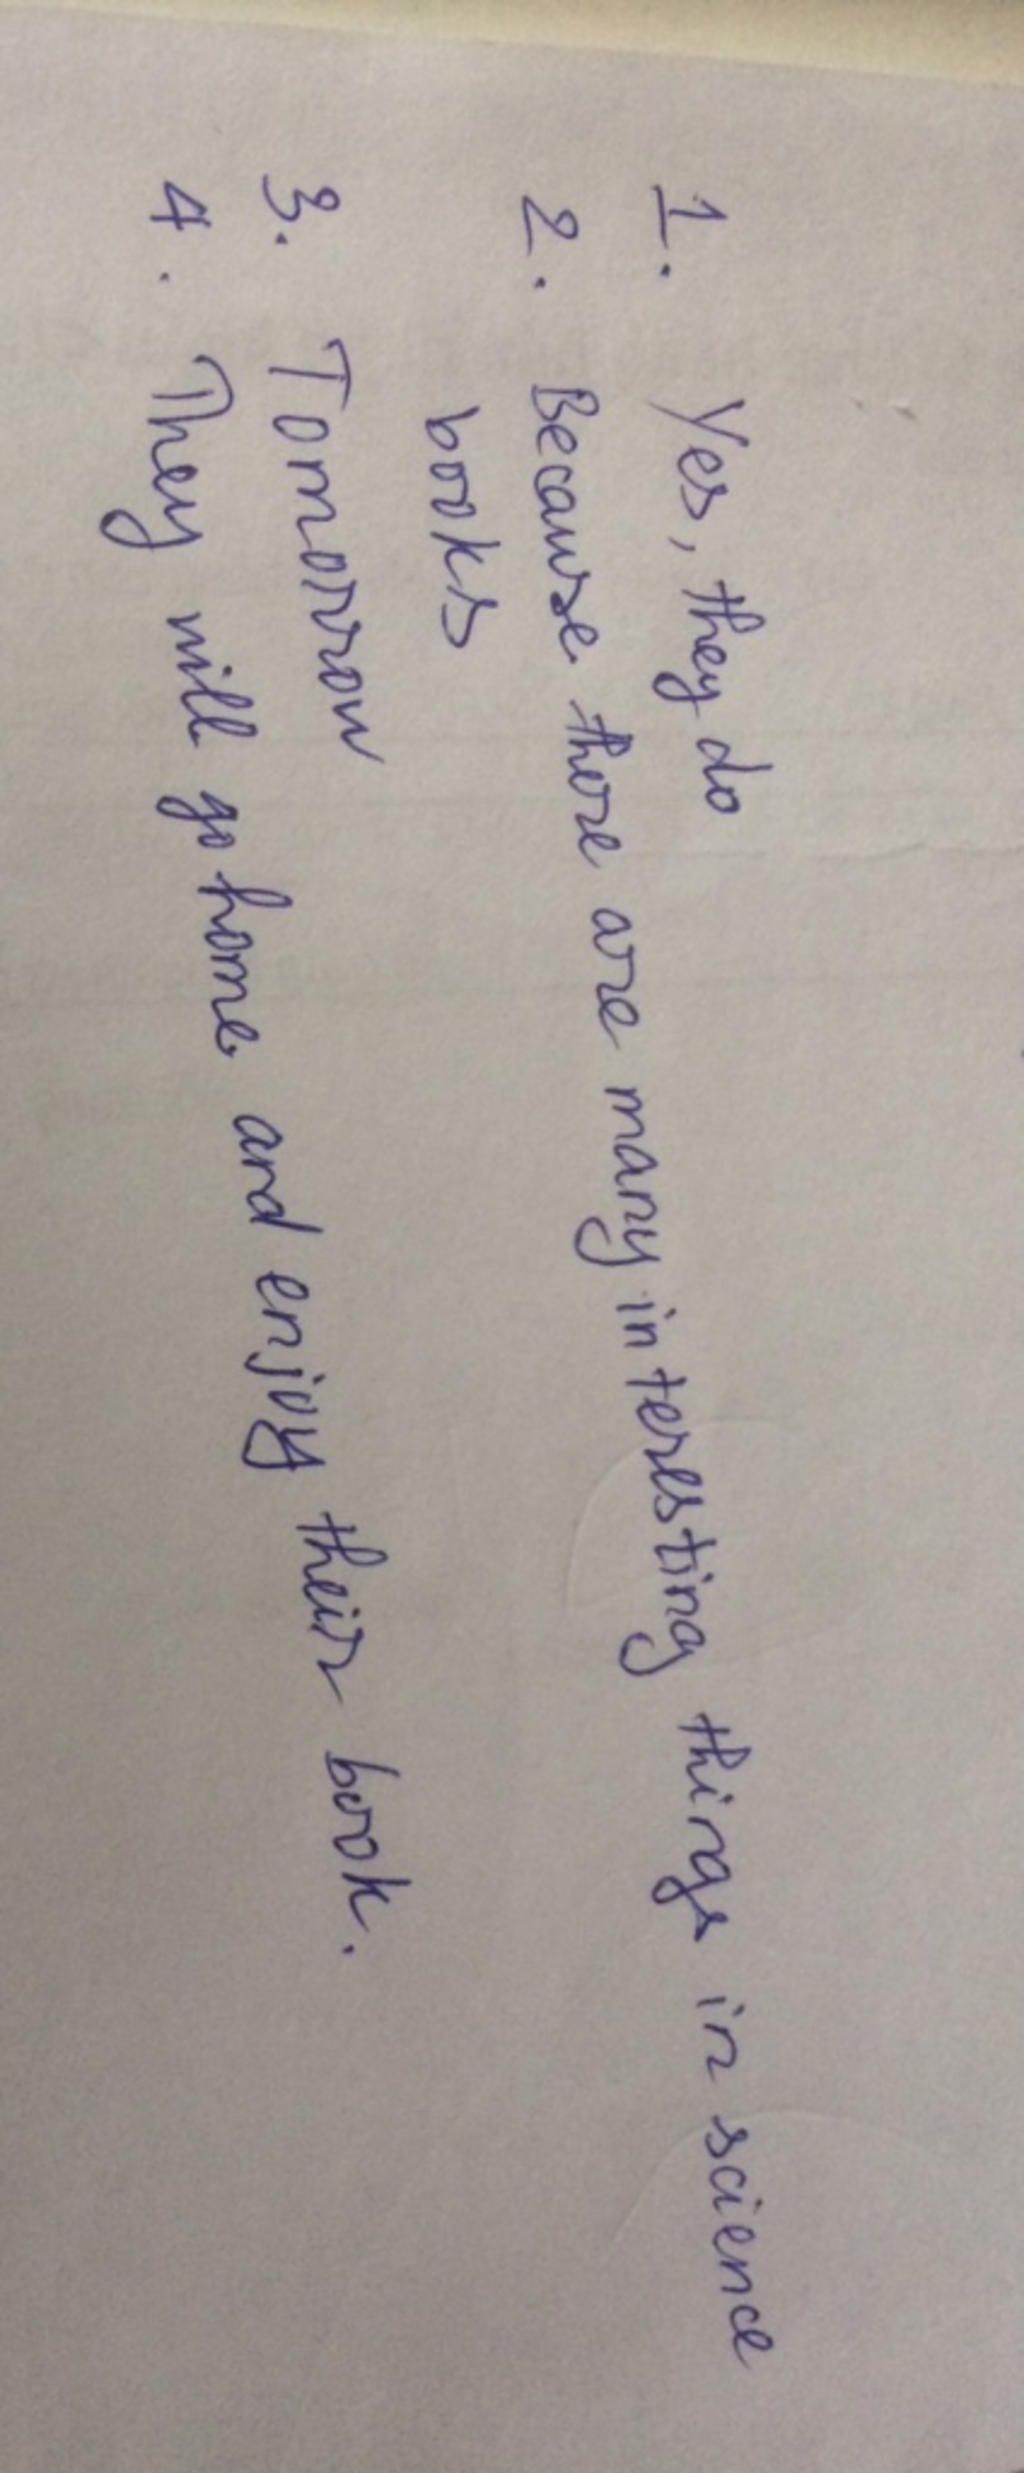 1. Yes, they do
2. Because there are many interesting things in science
books
3. Tomorrow
4. They will go home and enjoy their book.